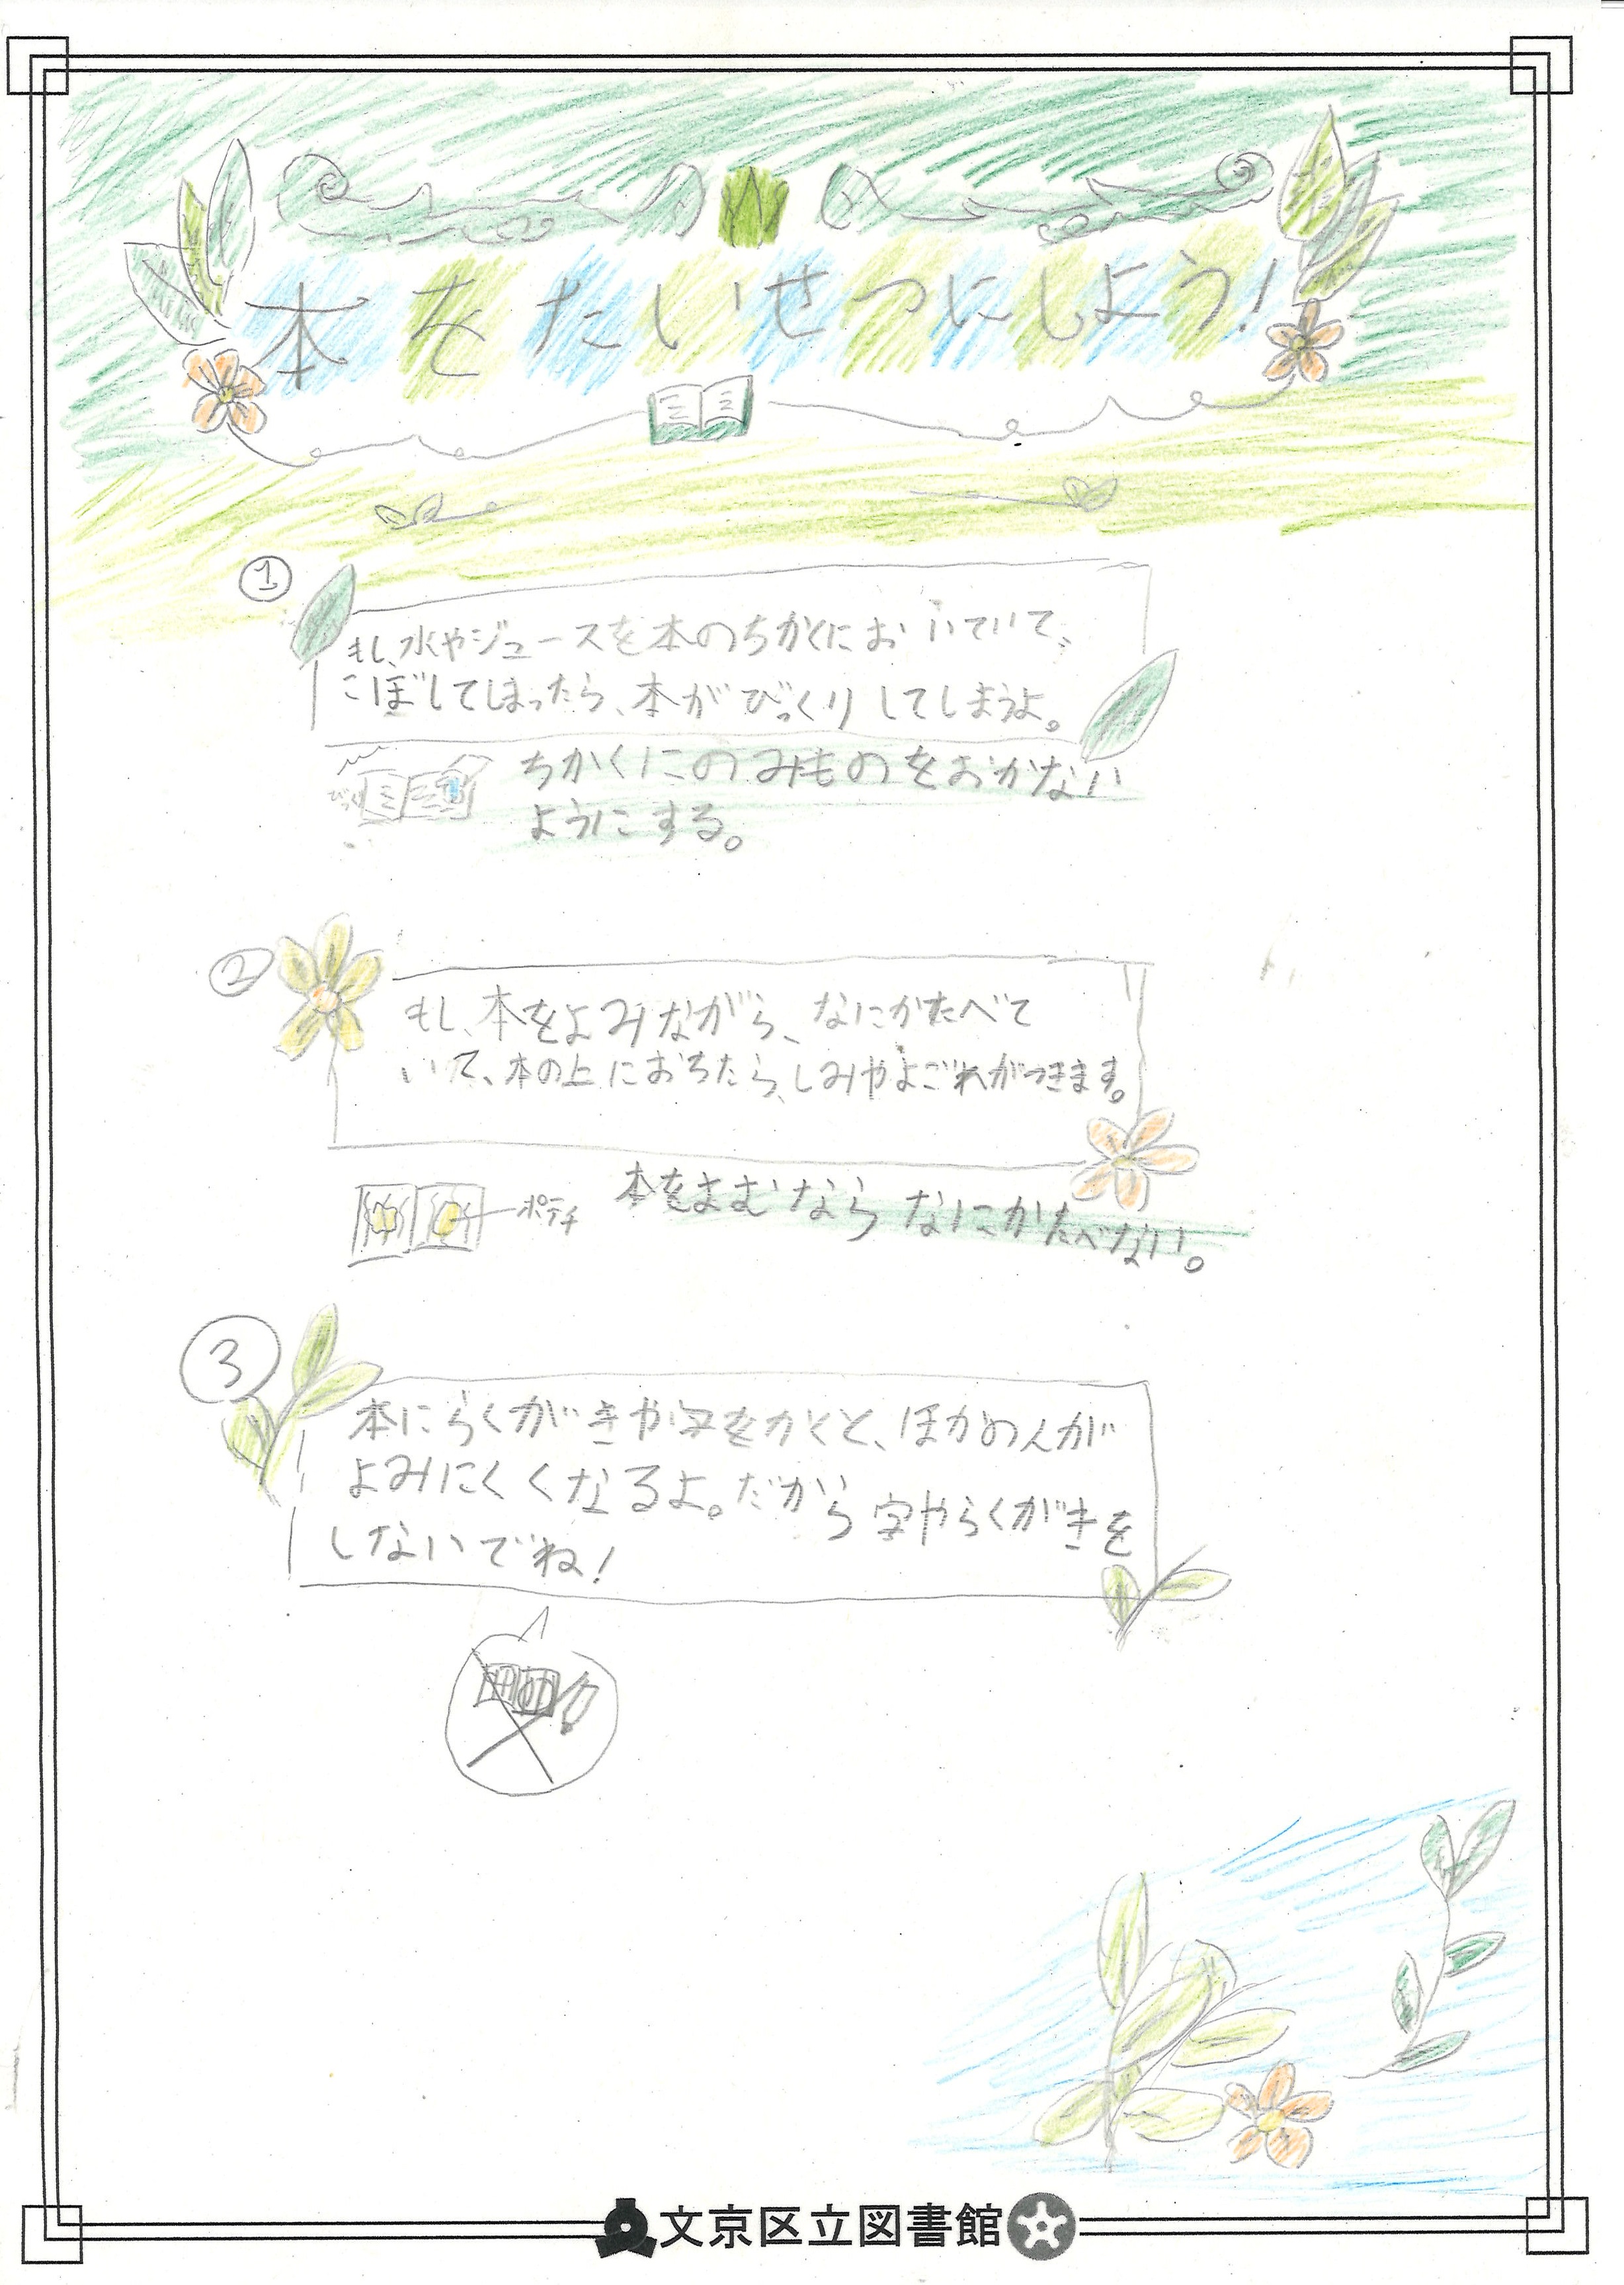 本をたいせつにしよう!
①
もし、水やジュースを本のちかくにおいていて、
こぼしてしまったら、本がびっくりしてしまうよ。
びっくり
ちかくにのみものをおかない
ようにする。
②
もし、本をよみながら、なにかたべて
いて、本の上におちたら、しみやよごれがつきます。
ポテチ
本をよむなら なにかたべない。
③
本にらくがきや字をかくと、ほかの人が
よみにくくなるよ。だから字やらくがきを
しないでね!
文京区立図書館